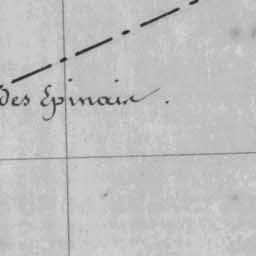 des Epinais.